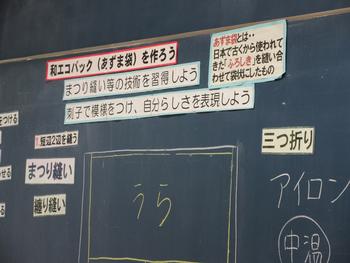 和エコバック（あずま袋）を作ろう
まつり縫い等の技術を習得しよう
刺子で模様をつけ、自分らしさを表現しよう
あずま袋とは‥
日本で古くから使われて
きた「ふろしき」を縫い合
わせて袋状にしたもの
をつける
短辺2辺を縫う
まつり縫い
纏り縫い
うら
三つ折り
アイロン
中温